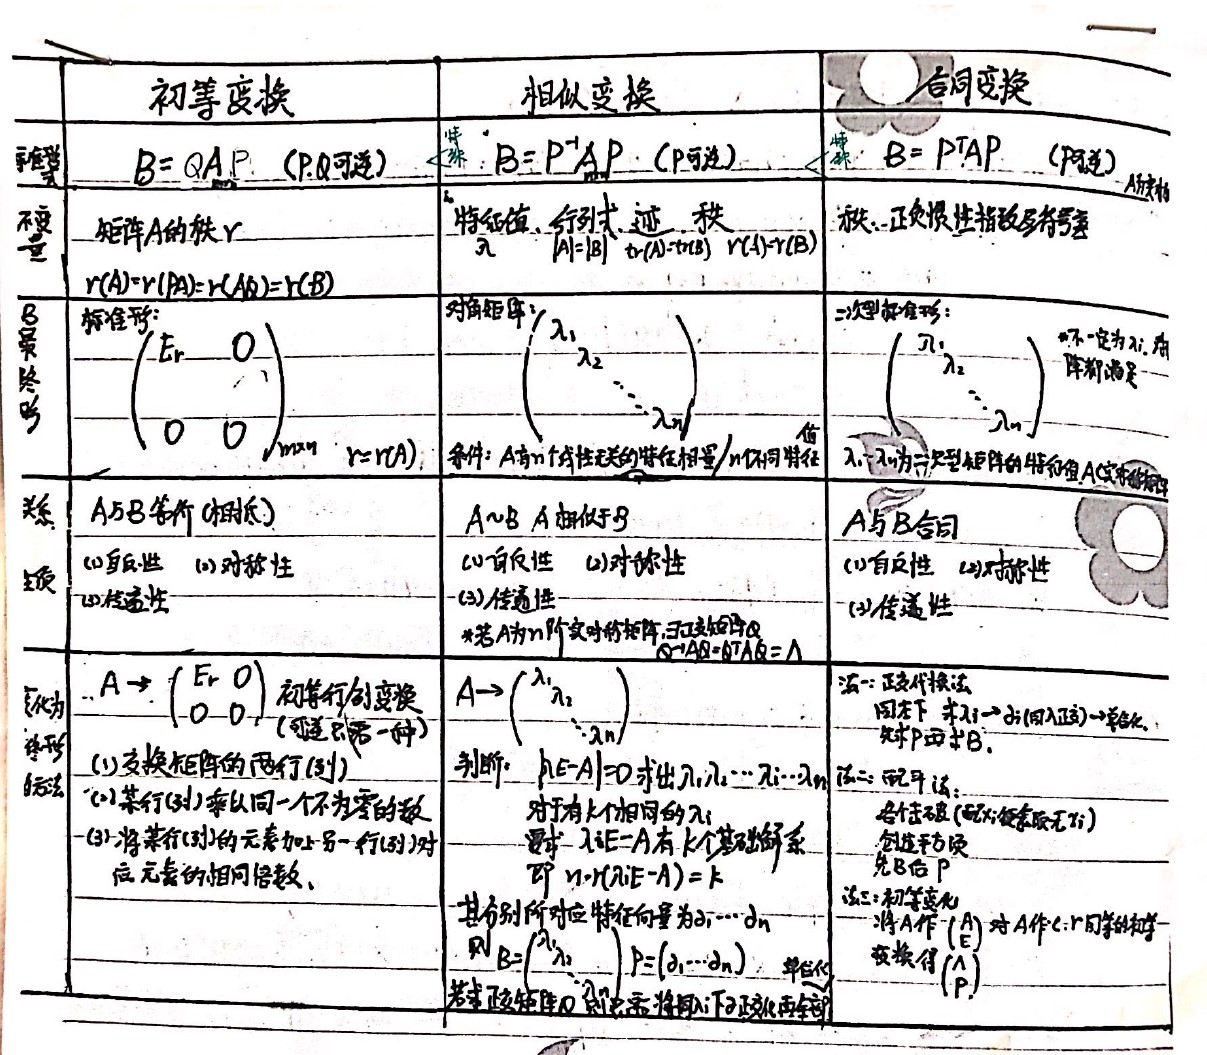 初等变换
相似变换
合同变换
B=QAP (P.Q可逆)
特殊
B=P⁻¹AP (P可逆)
特殊
B=PᵀAP (P可逆)
不变量
矩阵A的秩r
r(A)=r(PA)=r(AQ)=r(B)
特征值、行列式、迹 秩
λ |A|=|B| tr(A)=tr(B) r(A)=r(B)
秩、正负惯性指数与符号差
B最终形
标准形:
Er O
O O m×n r=r(A)
对角矩阵:
λ₁
λ₂
λn
条件: A有n个线性无关的特征相量/n个不同特征值
二次型标准形:
λ₁
λ₂
λn
*不一定为λi.
阵都满足
λ₁…λn为二次型矩阵的特征值.
关系
A与B等价(相抵)
(1)自反性 (2)对称性
(3)传递性
A~B A相似于B
(1)自反性 (2)对称性
(3)传递性
*若A为n阶实对称矩阵,∃正交矩阵Q
Q⁻¹AQ=QᵀAQ=Λ
A与B合同
(1)自反性 (2)对称性
(3)传递性
A→ (Er O
O O) 初等行/列变换
(可逆只需一种)
(1)交换矩阵的两行(列)
(2)某行(列)乘以同一个不为零的数
(3)将某行(列)的元素加上另一行(列)对
应元素的相同倍数、
A→ λ₁
λ₂
λn
判断: |λE-A|=0 求出λ₁λ₂…λi…λn
对于有k个相同的λi
要求 λiE-A有k个基础解系
即 n-r(λiE-A)=k
其分别所对应特征向量为∂₁…∂n
则 B= λ₁
λ₂
λn P=(∂₁…∂n)
若求正交矩阵Q 则只需将同λi下∂正交化再全部单位化
法一: 正交代换法
同左下 求λi→∂i(同λ正交)→单位化、
先求P再求B.
法二: 配方法:
各个击破
创造平方项
先B后P
法三: 初等变化
将A作 (A
E) 对A作c.r同等的初等
变换得 (Λ
P)